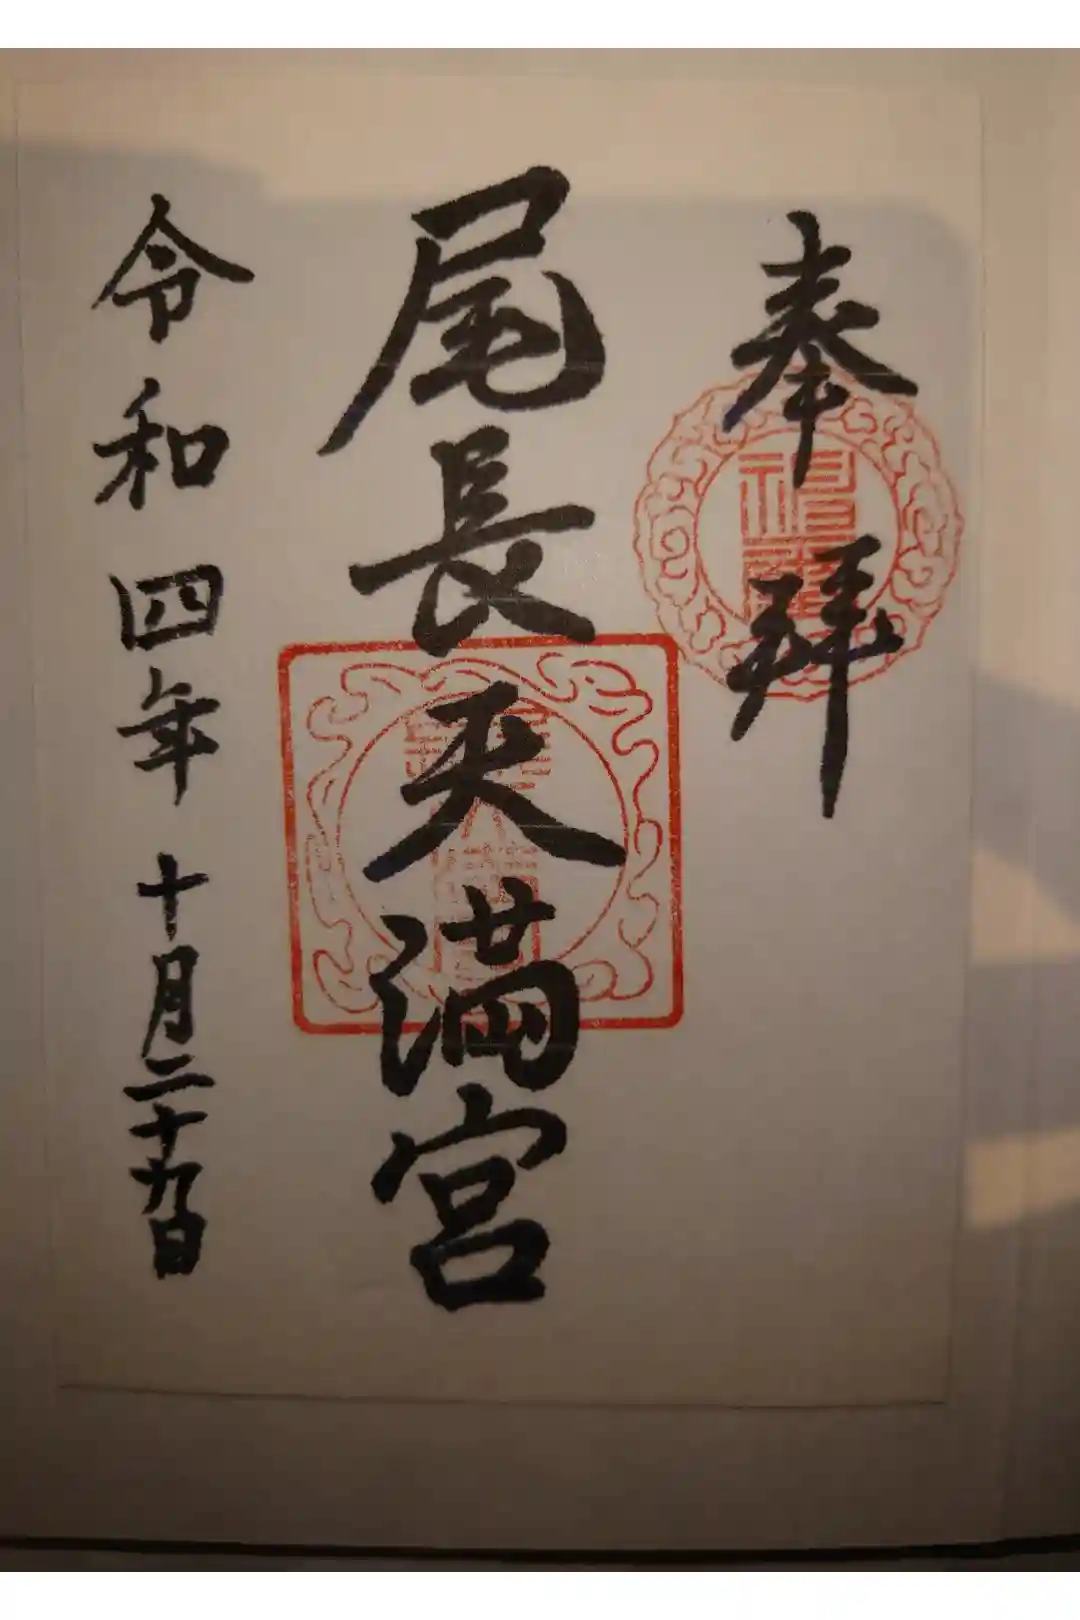 奉拜
尾長天満宮
令和四年十月二十九日